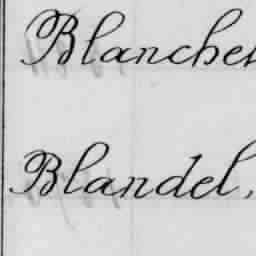 Blanchet
Blandel,